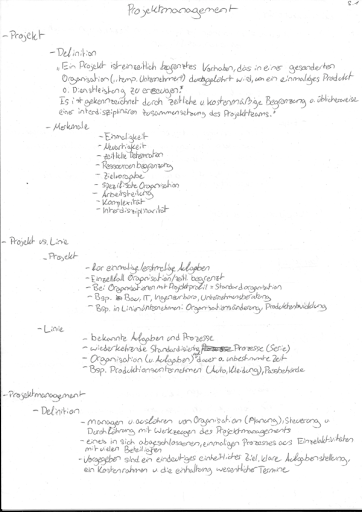 Projektmanagement
- Projekt
- Definition
„Ein Projekt ist ein zeitlich begrenztes Vorhaben, das in einer gesonderten
Organisation (i. temp. Unternehmen) durchgeführt wird, um ein einmaliges Produkt
o. Dienstleistung zu erzeugen."
Es ist gekennzeichnet durch zeitliche u. kostenmäßige Begrenzung u. üblicherweise
einer interdisziplinären Zusammensetzung des Projektteams."
- Merkmale
- Einmaligkeit
- Neuartigkeit
- zeitliche Determination
- Ressourcenbegrenzung
- Zielvorgabe
- spezifische Organisation
- Arbeitsteilung
- Komplexität
- Interdisziplinarität
- Projekt vs. Linie
- Projekt
- für einmalige/erstmalige Aufgaben
- Einzelfall Organisation/zeitl. begrenzt
- Bei Organisationen mit Projektprofil = Standardorganisation
- Bsp. Bau, IT, Ingenieurbüro, Unternehmensberatung
- Bsp. in Linienunternehmen: Organisationsänderung, Produktentwicklung
- Linie
- bekannte Aufgaben und Prozesse
- wiederkehrende Standardisierte Prozesse (Serie)
- Organisation (u. Aufgaben) auf dauer o. unbestimmte Zeit
- Bsp. Produktionsunternehmen (Auto, Kleidung), Passbehörde
- Projektmanagement
- Definition
- managen u. ausführen von Organisation (Planung), Steuerung u.
Durchführung mit Werkzeugen des Projektmanagements
- eines in sich abgeschlossenen, einmaligen Prozesses aus Einzelaktivitäten
mit vielen Beteiligten
- vorgegeben sind ein eindeutiges einheitliches Ziel, klare Aufgabenstellung,
ein Kostenrahmen u. die einhaltung wesentlicher Termine